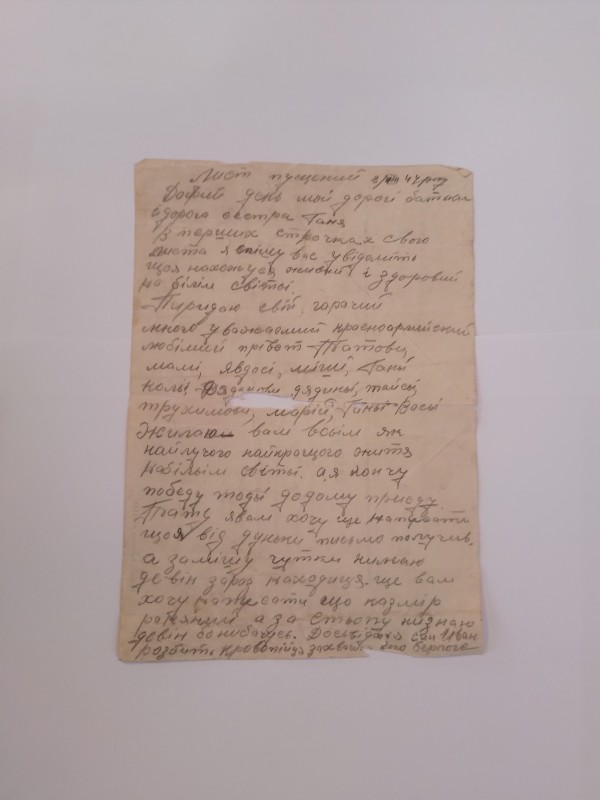 Лист пущений 8/VIII 44 року
Добрий день мої дорогі батько
і дорога сестра Ганя
В перших строчках свого
листа я спішу вас увідаміть
щоя нахожуся живий і здоровий
на білім світьі.
Пиридаю свій гарачий
много уважаємий красноармійский
любімий прівєт Татови,
мамі, явдосі, мігії, Гані
колі дядини, тайсі,
трухимови, марії, Гині Васі
Жилаю вам всьім як
найлучого найкрощого життя
набільім світьі. ая кончу
победу тоді додому приєду.
Тату явам хочу ще написати
щоя від дуньки письмо получив.
а за чутки нижаю
девін зараз находиця. ще вам
хочу написати що казмір
раняний а за стьопу низнаю
девін бо небачусь. Досьвіданя син Иван
розбить кровопійца захватч його берлоге